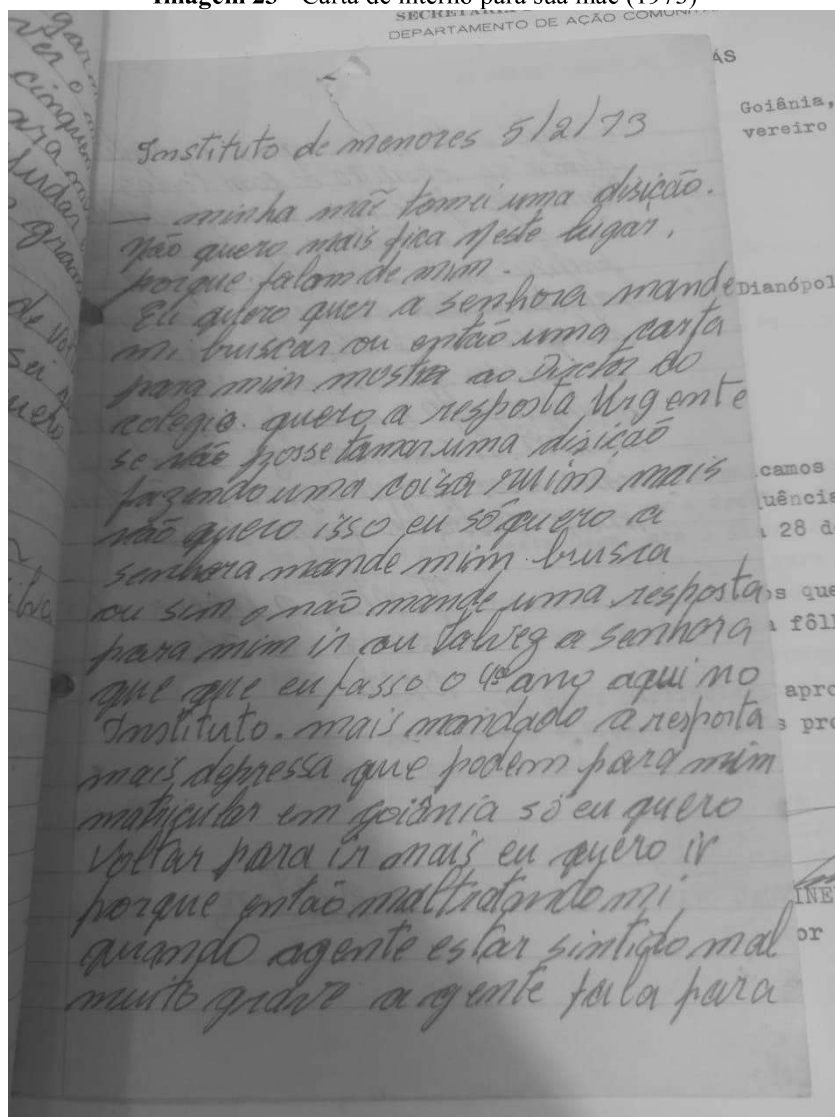 Imagem 23 – Carta de interno para sua mãe (1973)
DEPARTAMENTO DE AÇÃO
ÁS
Goiânia,
vereiro
Dianópol
camos
uência
28 d
s que
fôll
apro
s pro
INE
or
gar
ver o
cinquen
ara
ludar
gran
de vo
sei
uero
Instituto de menores 5/2/73
— minha mãe tomei uma disição.
não quero mais fica neste lugar,
porque falam de mim.
Eu quero quer a senhora mande
mi buscar ou então uma carta
para mim mostra ao Diretor do
colegio. quero a resposta Urgente
se não posse tamar uma disição
fazendo uma coisa ruim mais
não quero isso eu só quero a
senhora mande mim busca
ou sim o não mande uma resposta
para mim ir ou talvez a senhora
que que eu fasso o 4º ano aqui no
Instituto. mais mandado a resposta
mais depressa que podem para mim
matricular em goiânia só eu quero
Voltar para ir mais eu quero ir
porque então maltratando mi
quando agente estar sintido mal
muito grave a gente fala para